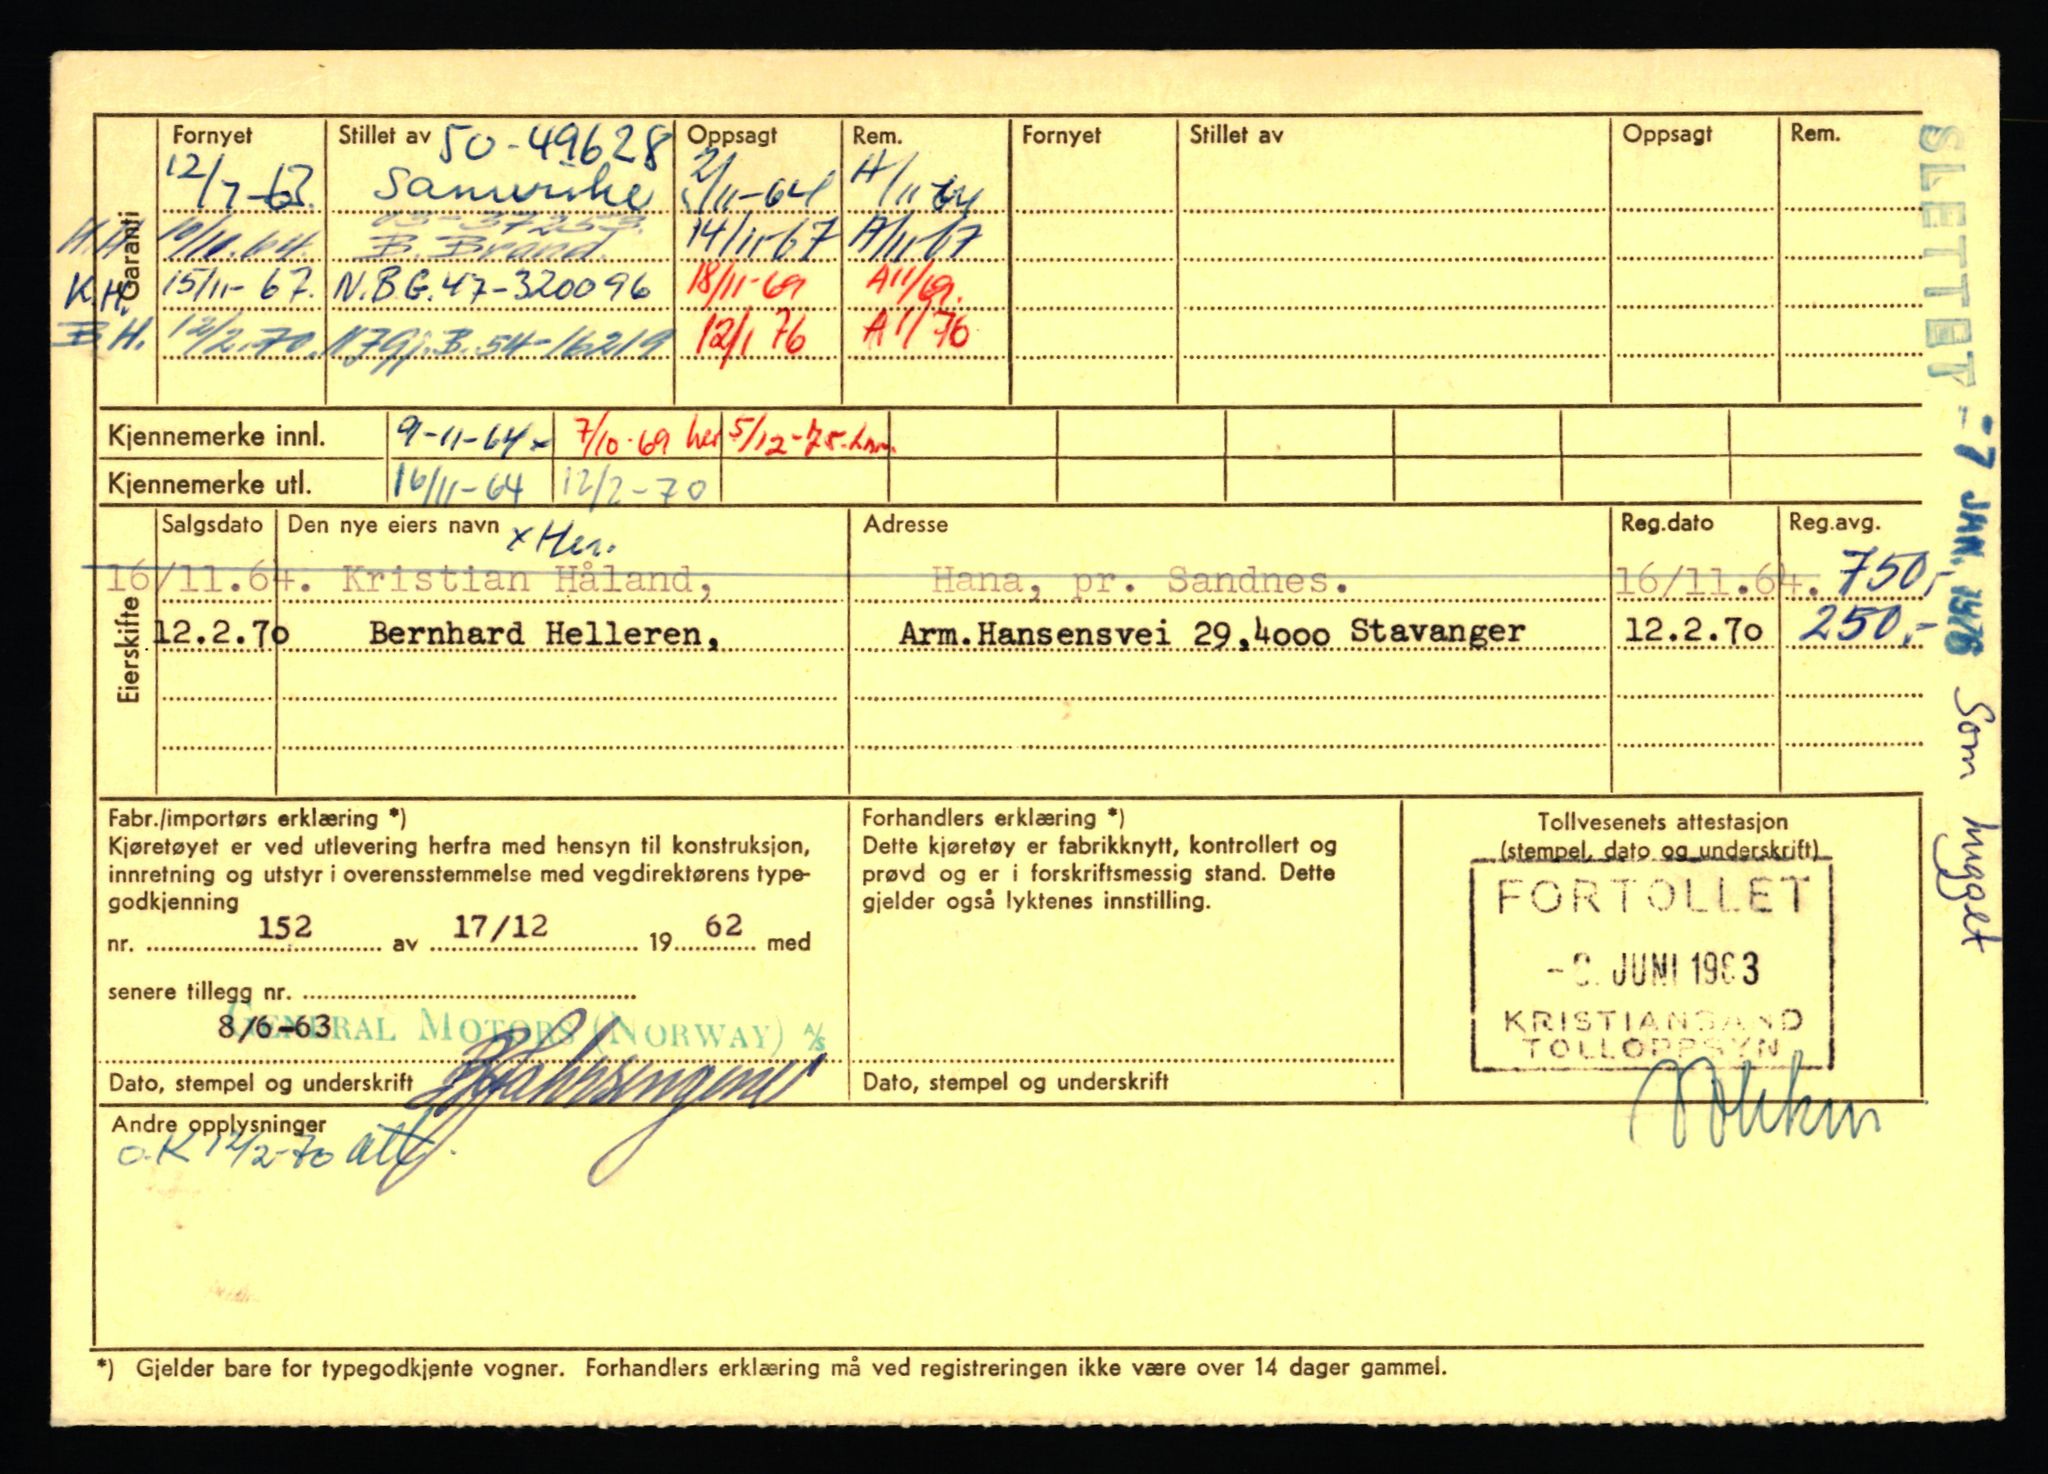 Garanti
Fornyet Stillet av Oppsagt Rem. Fornyet Stillet av Oppsagt Rem.
50-49628
12/7-63. Samvirke 2/11-64 A/11 64
H.H 10/11.64. 03-37253. B. Brand. 14/11-67 A/11-67
K.H. 15/11-67. N.B.G.47-320096 18/11-69 A11/69.
B.H. 12/2.70. B.54-16219 12/1 76 A 1/76
Kjennemerke innl. 9-11-64 7/10-69 her 5/12-75
Kjennemerke utl. 16/11-64 12/2-70
Eierskifte
Salgsdato Den nye eiers navn Adresse Reg.dato Reg.avg.
x Her.
16/11.64. Kristian Håland, Hana, pr. Sandnes. 16/11.64. 750,-
12.2.70 Bernhard Helleren, Arm.Hansensvei 29,4000 Stavanger 12.2.70 250,-
SLETTET -7 JAN. 1976 Som hugget
Fabr./importørs erklæring *)
Kjøretøyet er ved utlevering herfra med hensyn til konstruksjon,
innretning og utstyr i overensstemmelse med vegdirektørens type-
godkjenning
nr. 152 av 17/12 19 62 med
senere tillegg nr.
8/6-63 GENERAL MOTORS (NORWAY) A/S
Dato, stempel og underskrift
Forhandlers erklæring *)
Dette kjøretøy er fabrikknytt, kontrollert og
prøvd og er i forskriftsmessig stand. Dette
gjelder også lyktenes innstilling.
Dato, stempel og underskrift
Tollvesenets attestasjon
(stempel, dato og underskrift)
FORTOLLET
JUNI 1963
KRISTIANSAND
TOLLOPPSYN
Andre opplysninger
O.K 12/2-70
*) Gjelder bare for typegodkjente vogner. Forhandlers erklæring må ved registreringen ikke være over 14 dager gammel.